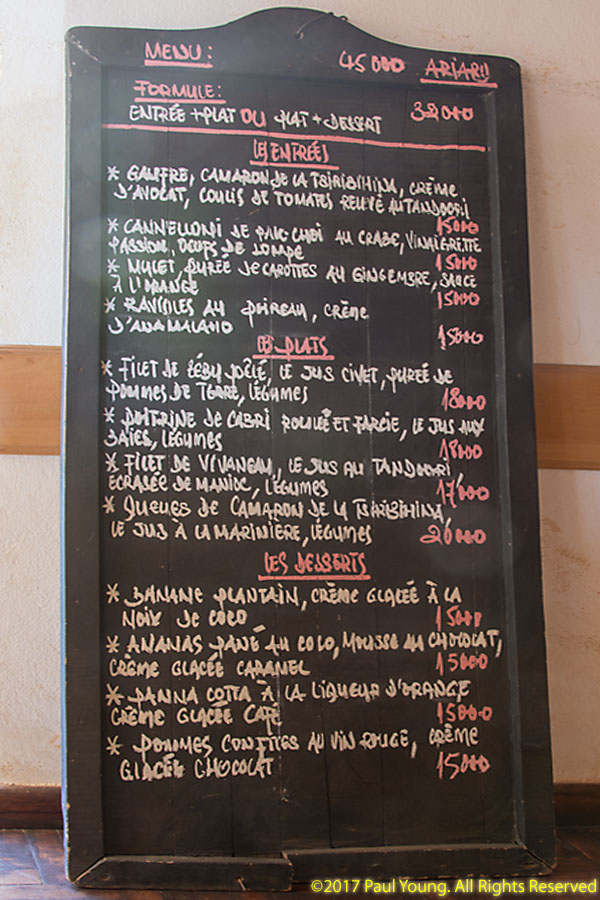 MENU : 45000 ARIARY
FORMULE :
ENTRÉE + PLAT OU PLAT + DESSERT 32000
LES ENTRÉES
* GAUFRE, CAMARON DE LA TSIRIBIHINA, CRÈME
D'AVOCAT, COULIS DE TOMATES RELEVÉ AU TANDOORI
15000
* CANNELLONI DE PAK CHOI AU CRABE, VINAIGRETTE
PASSION, OEUFS DE LOMPE
15000
* MULET, PURÉE DE CAROTTES AU GINGEMBRE, SAUCE
À L'ORANGE 15000
* RAVIOLES AU POIREAU, CRÈME
D'ANAMALAHO 15000
LES PLATS
* FILET DE ZÉBU POÊLÉ, LE JUS CIVET, PURÉE DE
POMMES DE TERRE, LÉGUMES 18000
* POITRINE DE CABRI ROULÉE ET FARCIE, LE JUS AUX
BAIES, LÉGUMES 18000
* FILET DE VIVANEAU, LE JUS AU TANDOORI,
ECRASÉE DE MANIOC, LÉGUMES 17000
* QUEUES DE CAMARON DE LA TSIRIBIHINA,
LE JUS À LA MARINIÈRE, LÉGUMES 20000
LES DESSERTS
* BANANE PLANTAIN, CRÈME GLACÉE À LA
NOIX DE COCO 15000
* ANANAS PANÉ AU COCO, MOUSSE AU CHOCOLAT,
CRÈME GLACÉE CARAMEL 15000
* PANNA COTTA À LA LIQUEUR D'ORANGE
CRÈME GLACÉE CAFÉ 15000
* POMMES CONFITES AU VIN ROUGE, CRÈME
GLACÉE CHOCOLAT 15000
©2017 Paul Young. All Rights Reserved